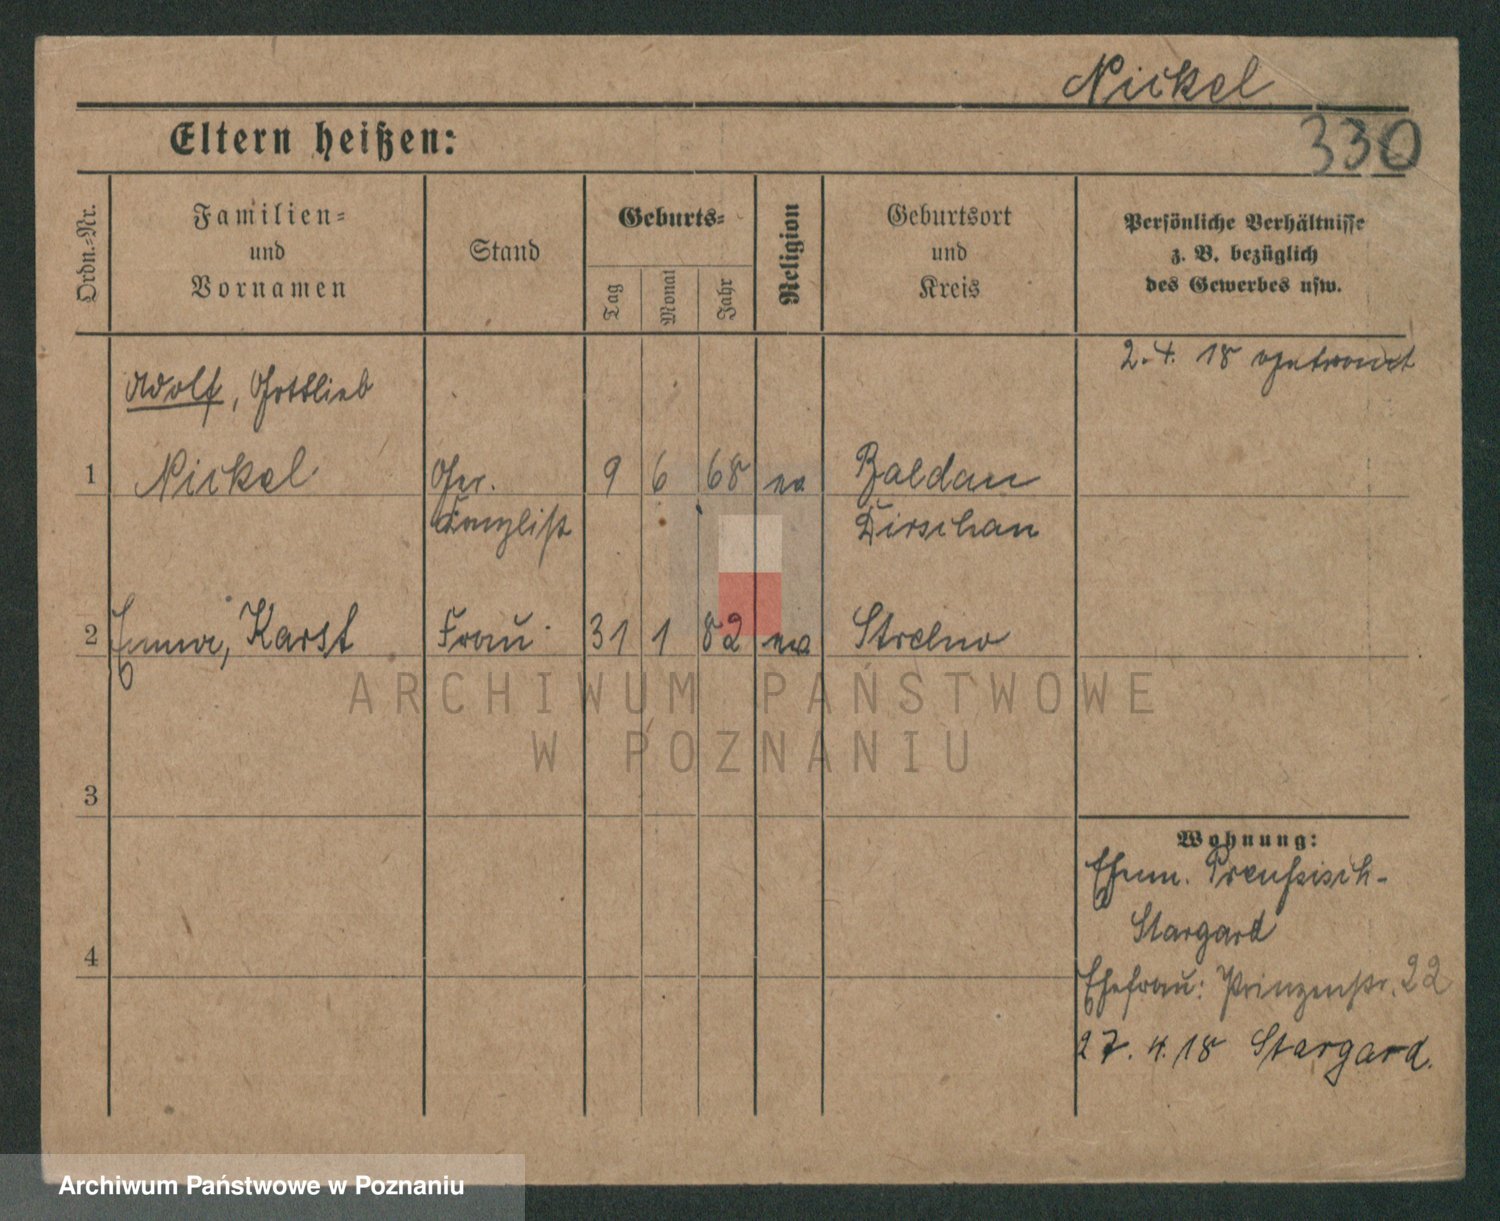 Nickel
330
Eltern heißen:
Ordn.-Nr.
Familien-
und
Vornamen
Stand
Geburts-
Tag
Monat
Jahr
Religion
Geburtsort
und
Kreis
Persönliche Verhältnisse
z. B. bezüglich
des Gewerbes usw.
2.4. 18 getrennt
Adolf, Gottlieb
1 Nickel Ger. 9 6 68 ev Baldau
Kanzlist Dirschau
2 Emma, Karst Frau 31 1 82 ev Strelno
3
4
Wohnung:
Ehem. Preußisch-
Stargard
Ehefrau: Prinzenstr. 22
27. 4. 18 Stargard.
ARCHIWUM PAŃSTWOWE
W POZNANIU
Archiwum Państwowe w Poznaniu